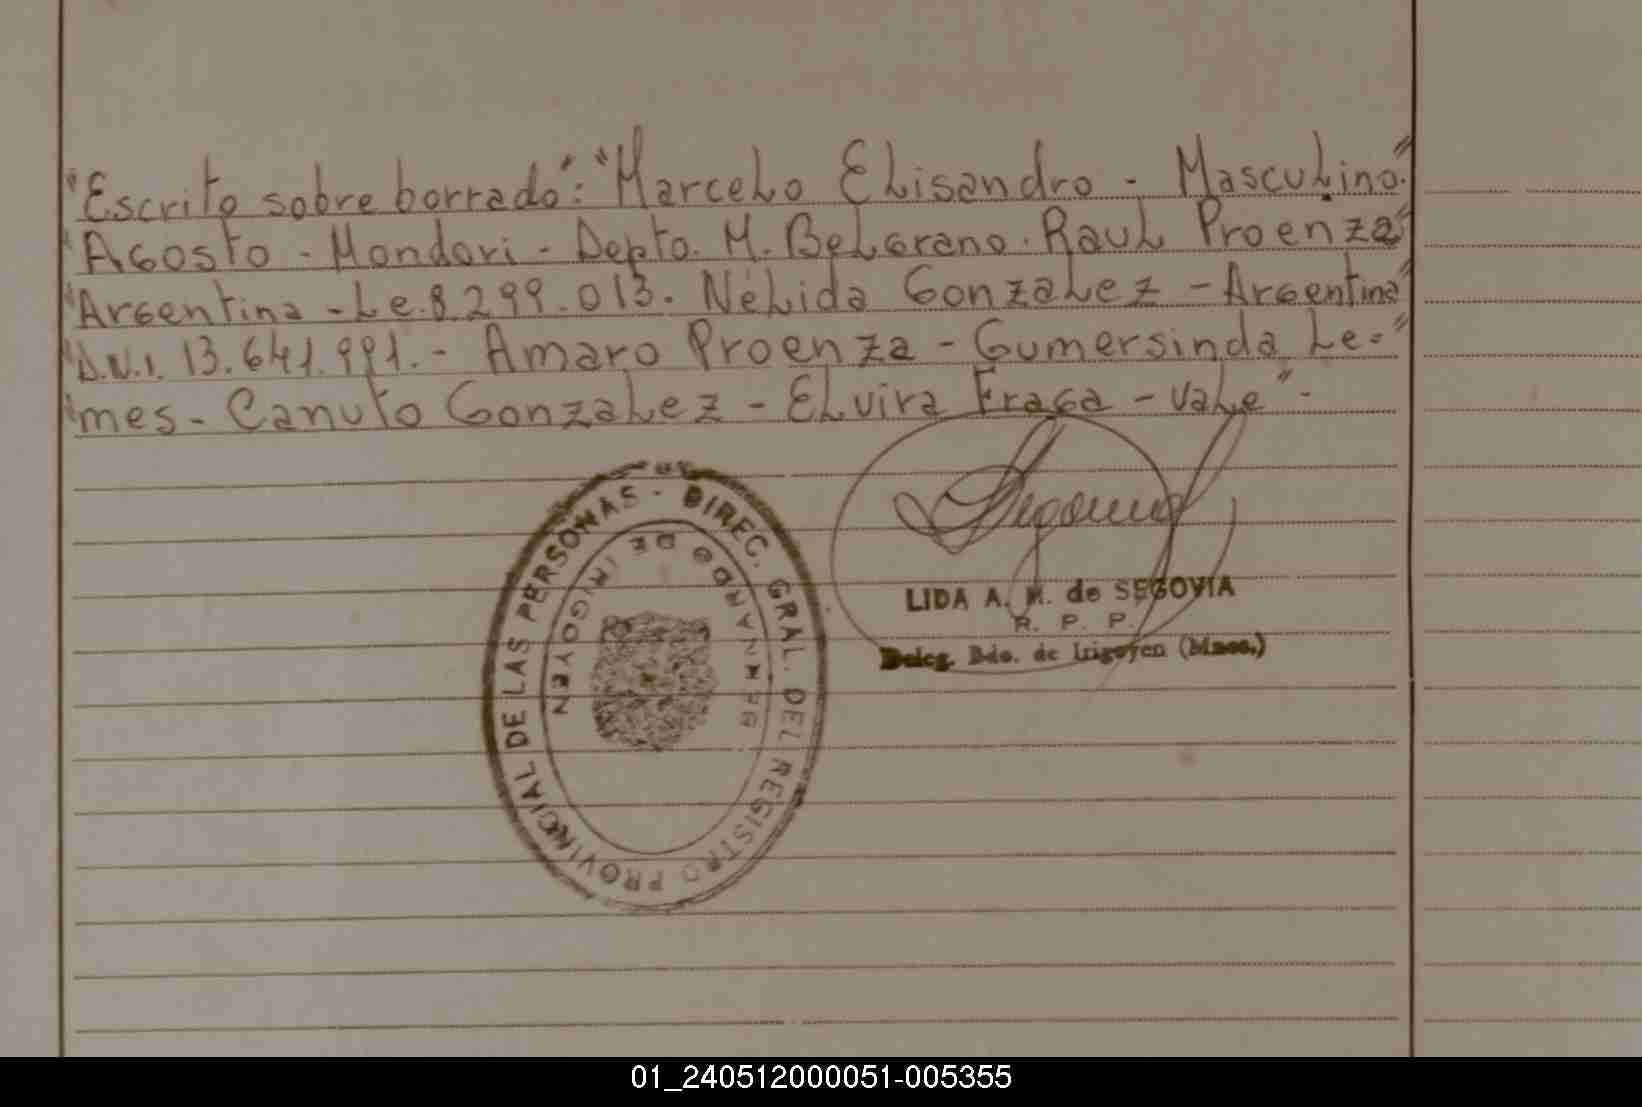 "Escrito sobre borrado": "Marcelo Elisandro - Masculino."
"Agosto - Mondori - Depto. M. Belgrano. Raul Proenza"
"Argentina - Le. 8.299.013. Nélida Gonzalez - Argentina"
"D.N.I. 13.641.991. - Amaro Proenza - Gumersinda Le-"
"mes - Canuto Gonzalez - Elvira Fraga - vale" -
DIREC. GRAL. DEL REGISTRO PROVINCIAL DE LAS PERSONAS -
BERNARDO DE IRIGOYEN
Segovia
LIDA A. M. de SEGOVIA
R. P. P.
Deleg. Bdo. de Irigoyen (Mnes.)
01_240512000051-005355